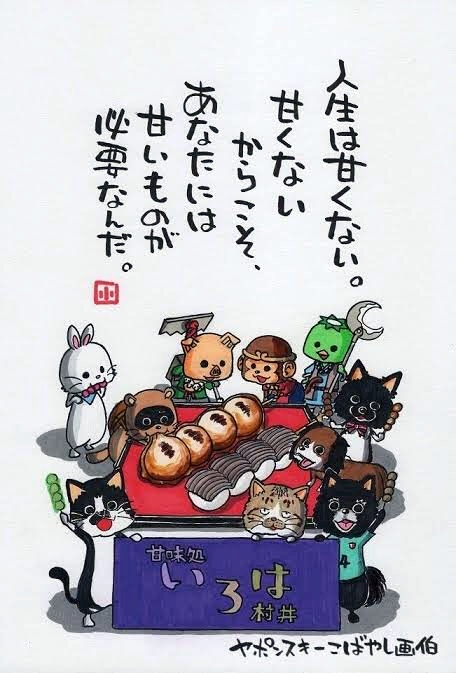 人生は甘くない。
甘くない
からこそ、
あなたには
甘いものが
必要なんだ。
小
甘味処
いろは
村井
4
ヤポンスキーこばやし画伯